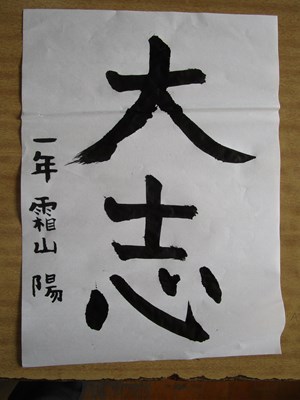 大志
一年 霜山 陽